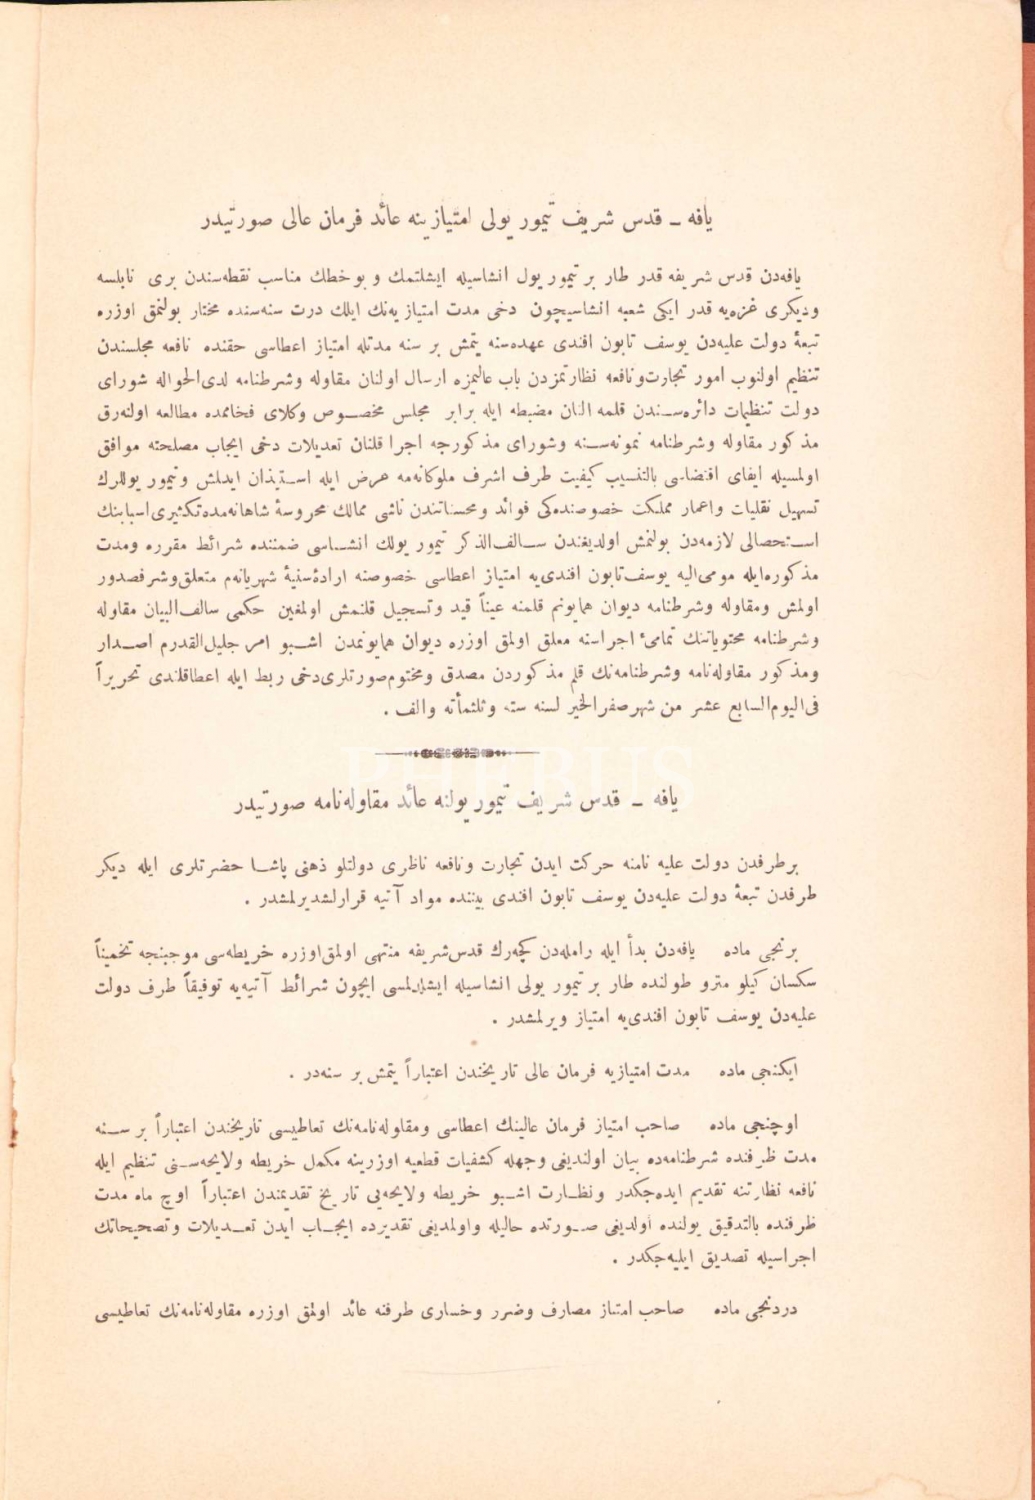 يافه ـ قدس شريف تيمور يولى امتيازينه عائد فرمان عالى صورتيدر
يافه‌دن قدس شريفه قدر طار بر تيمور يول انشاسيله ايشلتمك و بو خطك مناسب نقطه‌سندن برى نابلسه
وديكرى غزه‌يه قدر ايكى شعبه انشاسيچون دخى مدت امتيازيه‌نك ايلك درت سنه‌سنده مختار بولنمق اوزره
تبعهٔ دولت عليه‌دن يوسف نابون افندى عهده‌سنه يتمش بر سنه مدتله امتياز اعطاسى حقنده نافعه مجلسندن
تنظيم اولنوب امور تجارت ونافعه نظارتمزدن باب عاليمزه ارسال اولنان مقاوله وشرطنامه لدى‌الحواله شوراى
دولت تنظيمات دائره‌سندن قلمه النان مضبطه ايله برابر مجلس مخصوص وكلاى فخاممده مطالعه اولنه‌رق
مذكور مقاوله وشرطنامه نمونه‌سنه وشوراى مذكورجه اجرا قلنان تعديلات دخى ايجاب مصلحته موافق
اولمسيله ايفاى اقتضاسى بالتنسيب كيفيت طرف اشرف ملوكانه‌مه عرض ايله استيذان ايدلمش وتيمور يوللرك
تسهيل نقليات واعمار مملكت خصوصنده‌كى فوائد ومحسناتندن ناشى ممالك محروسهٔ شاهانه‌مده تكثيرى اسبابنك
استحصالى لازمه‌دن بولنمش اولديغندن سالف‌الذكر تيمور يولك انشاسى ضمننده شرائط مقرره ومدت
مذكوره‌ايله مومى‌اليه يوسف نابون افندى‌يه امتياز اعطاسى خصوصنه ارادهٔ سنيهٔ شهريانه‌م متعلق وشرفصدور
اولمش ومقاوله وشرطنامه ديوان همايونم قلمنه عيناً قيد وتسجيل قلنمش اولمغين حكمى سالف‌البيان مقاوله
وشرطنامه محتوياتنك تمامىٔ اجراسنه معلق اولمق اوزره ديوان همايونمدن اشبو امر جليل‌القدرم اصدار
ومذكور مقاوله‌نامه وشرطنامه‌نك قلم مذكوردن مصدق ومختوم صورتلرى‌دخى ربط ايله اعطاقلندى تحريراً
فى‌اليوم‌السابع عشر من شهر صفرالخير لسنه سته وثلثمأته والف .
PHEBUS
يافه ـ قدس شريف تيمور يولنه عائد مقاوله‌نامه صورتيدر
برطرفدن دولت عليه نامنه حركت ايدن تجارت ونافعه ناظرى دولتلو ذهنى پاشا حضرتلرى ايله ديكر
طرفدن تبعهٔ دولت عليه‌دن يوسف نابون افندى بيننده مواد آتيه قرارلشديرلمشدر .
برنجى ماده يافه‌دن بدأ ايله رامله‌دن كچه‌رك قدس‌شريفه منتهى اولمق‌اوزره خريطه‌سى موجبنجه تخميناً
سكسان كيلو مترو طولنده طار بر تيمور يولى انشاسيله ايشلدلمسى ايچون شرائط آتيه‌يه توفيقاً طرف دولت
عليه‌دن يوسف نابون افندى‌يه امتياز ويرلمشدر .
ايكنجى ماده مدت امتيازيه فرمان عالى تاريخندن اعتباراً يتمش بر سنه‌در .
اوچنجى ماده صاحب امتياز فرمان عالينك اعطاسى ومقاوله‌نامه‌نك تعاطيسى تاريخندن اعتباراً بر سنه
مدت ظرفنده شرطنامه‌ده بيان اولنديغى وجهله كشفيات قطعيه اوزرينه مكمل خريطه ولايحه‌سنى تنظيم ايله
نافعه نظارتنه تقديم ايده‌جكدر ونظارت اشبو خريطه ولايحه‌يى تاريخ تقديمندن اعتباراً اوچ ماه مدت
ظرفنده بالتدقيق يولنده اولديغى صورتده حاليله واولمديغى تقديرده ايجاب ايدن تعديلات وتصحيحاتك
اجراسيله تصديق ايليه‌جكدر .
دردنجى ماده صاحب امتياز مصارف وضرر وخسارى طرفنه عائد اولمق اوزره مقاوله‌نامه‌نك تعاطيسى